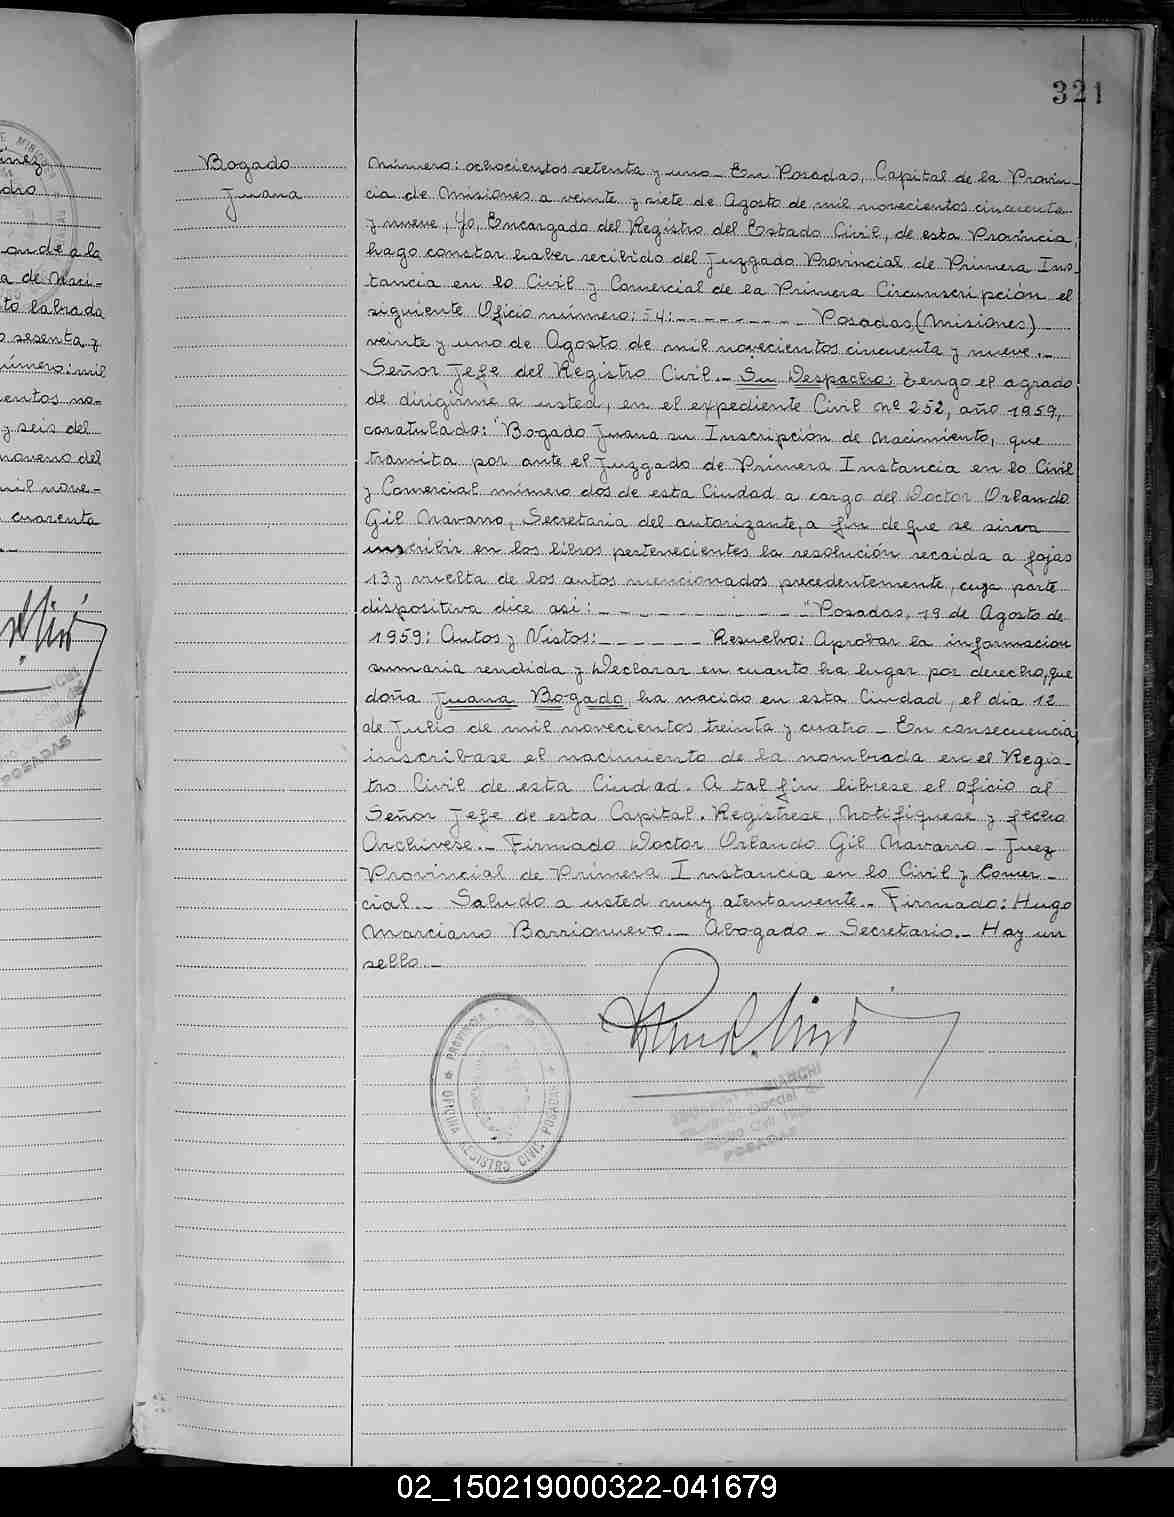 321
Bogado
Juana
Número: ochocientos setenta y uno_ En Posadas, Capital de la Provin_
cia de Misiones a veinte y siete de Agosto de mil novecientos cincuenta
y nueve, Yo, Encargado del Registro del Estado Civil, de esta Provincia,
hago constar haber recibido del Juzgado Provincial de Primera Ins_
tancia en lo Civil y Comercial de la Primera Circunscripción el
siguiente Oficio número: 54:_ _ _ _ _ _ _ _ Posadas (Misiones)
veinte y uno de Agosto de mil novecientos cincuenta y nueve._
Señor Jefe del Registro Civil._ Su Despacho: Tengo el agrado
de dirigirme a usted, en el expediente Civil nº 252, año 1959,
caratulado: "Bogado Juana su Inscripción de Nacimiento, que
tramita por ante el Juzgado de Primera Instancia en lo Civil
y Comercial número dos de esta Ciudad a cargo del Doctor Orlando
Gil Navarro, Secretaria del autorizante, a fin de que se sirva
inscribir en los libros pertenecientes la resolución recaida a fojas
13 y vuelta de los autos mencionados precedentemente, cuya parte
dispositiva dice asi:_ _ _ _ _ _ _ _ "Posadas, 19 de Agosto de
1959: Autos y Vistos:_ _ _ _ _ _ Resuelvo: Aprobar la informacion
sumaria rendida y Declarar en cuanto ha lugar por derecho, que
doña Juana Bogado, ha nacido en esta Ciudad, el dia 12
de Julio de mil novecientos treinta y cuatro_ En consecuencia
inscribase el nacimiento de la nombrada en el Regis_
tro Civil de esta Ciudad. A tal fin librese el oficio al
Señor Jefe de esta Capital. Registrese, Notifiquese y fecho
Archivese._ Firmado Doctor Orlando Gil Navarro_ Juez
Provincial de Primera Instancia en lo Civil y Comer_
cial._ Saludo a usted muy atentamente_ Firmado: Hugo
Marciano Barrionuevo._ Abogado_ Secretario._ Hay un
sello_
PROVINCIA
OFICINA REGISTRO CIVIL POSADAS
BIANCHI
Especial
Civil
POSADAS
onde a la
a de Naci-
to labrada
sesenta y
número: mil
entos no-
y seis del
noveno del
mil nove-
cuarenta
POSADAS
02_150219000322-041679